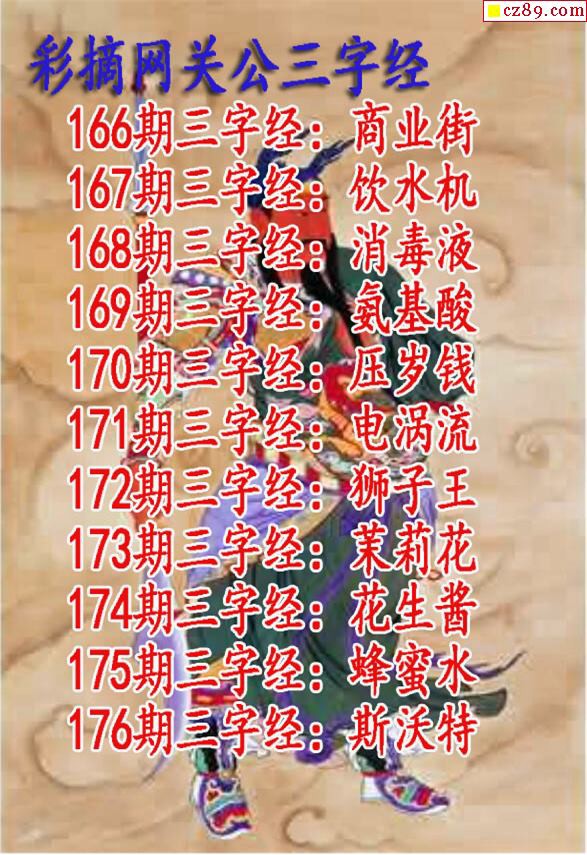 cz89.com
彩摘网关公三字经
166期三字经：商业街
167期三字经：饮水机
168期三字经：消毒液
169期三字经：氨基酸
170期三字经：压岁钱
171期三字经：电涡流
172期三字经：狮子王
173期三字经：茉莉花
174期三字经：花生酱
175期三字经：蜂蜜水
176期三字经：斯沃特